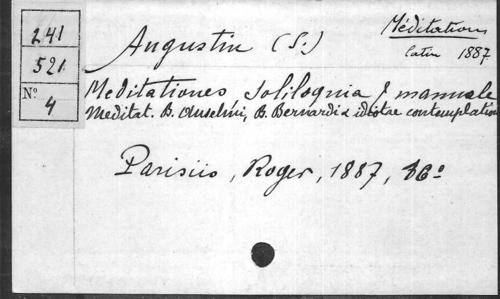 241
521
N° 4
Augustin (S.)
Méditations
latin 1887.
Meditationes soliloquia & manuale
Meditat. B. Anselmi, B. Bernardi & idiotae contemplation
Parisiis, Roger, 1887, 16°